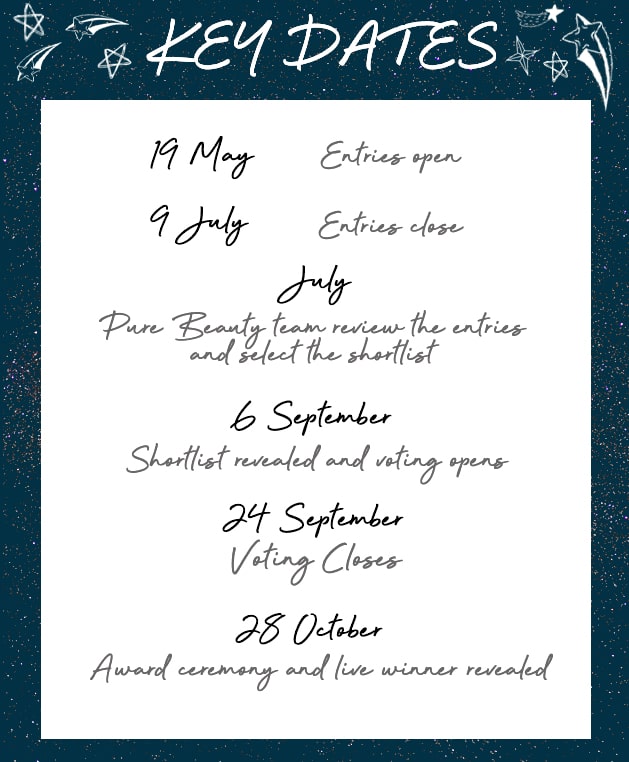 KEY DATES
19 May Entries open
9 July Entries close
July
Pure Beauty team review the entries
and select the shortlist
6 September
Shortlist revealed and voting opens
24 September
Voting Closes
28 October
Award ceremony and live winner revealed